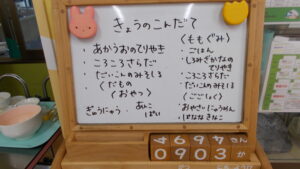 きょうのこんだて
・あかうおのてりやき
・ころころさらだ
・だいこんのみそしる
・くだもの
〈おやつ〉
ぎゅうにゅう
あんこ
ぱい
〈ももぐみ〉
・ごはん
・しろみざかなの
てりやき
・ころころさらだ
・だいこんのみそしる
〈ごごしょく〉
・おやさいにゅうめん
・ばななきなこ
0903
か